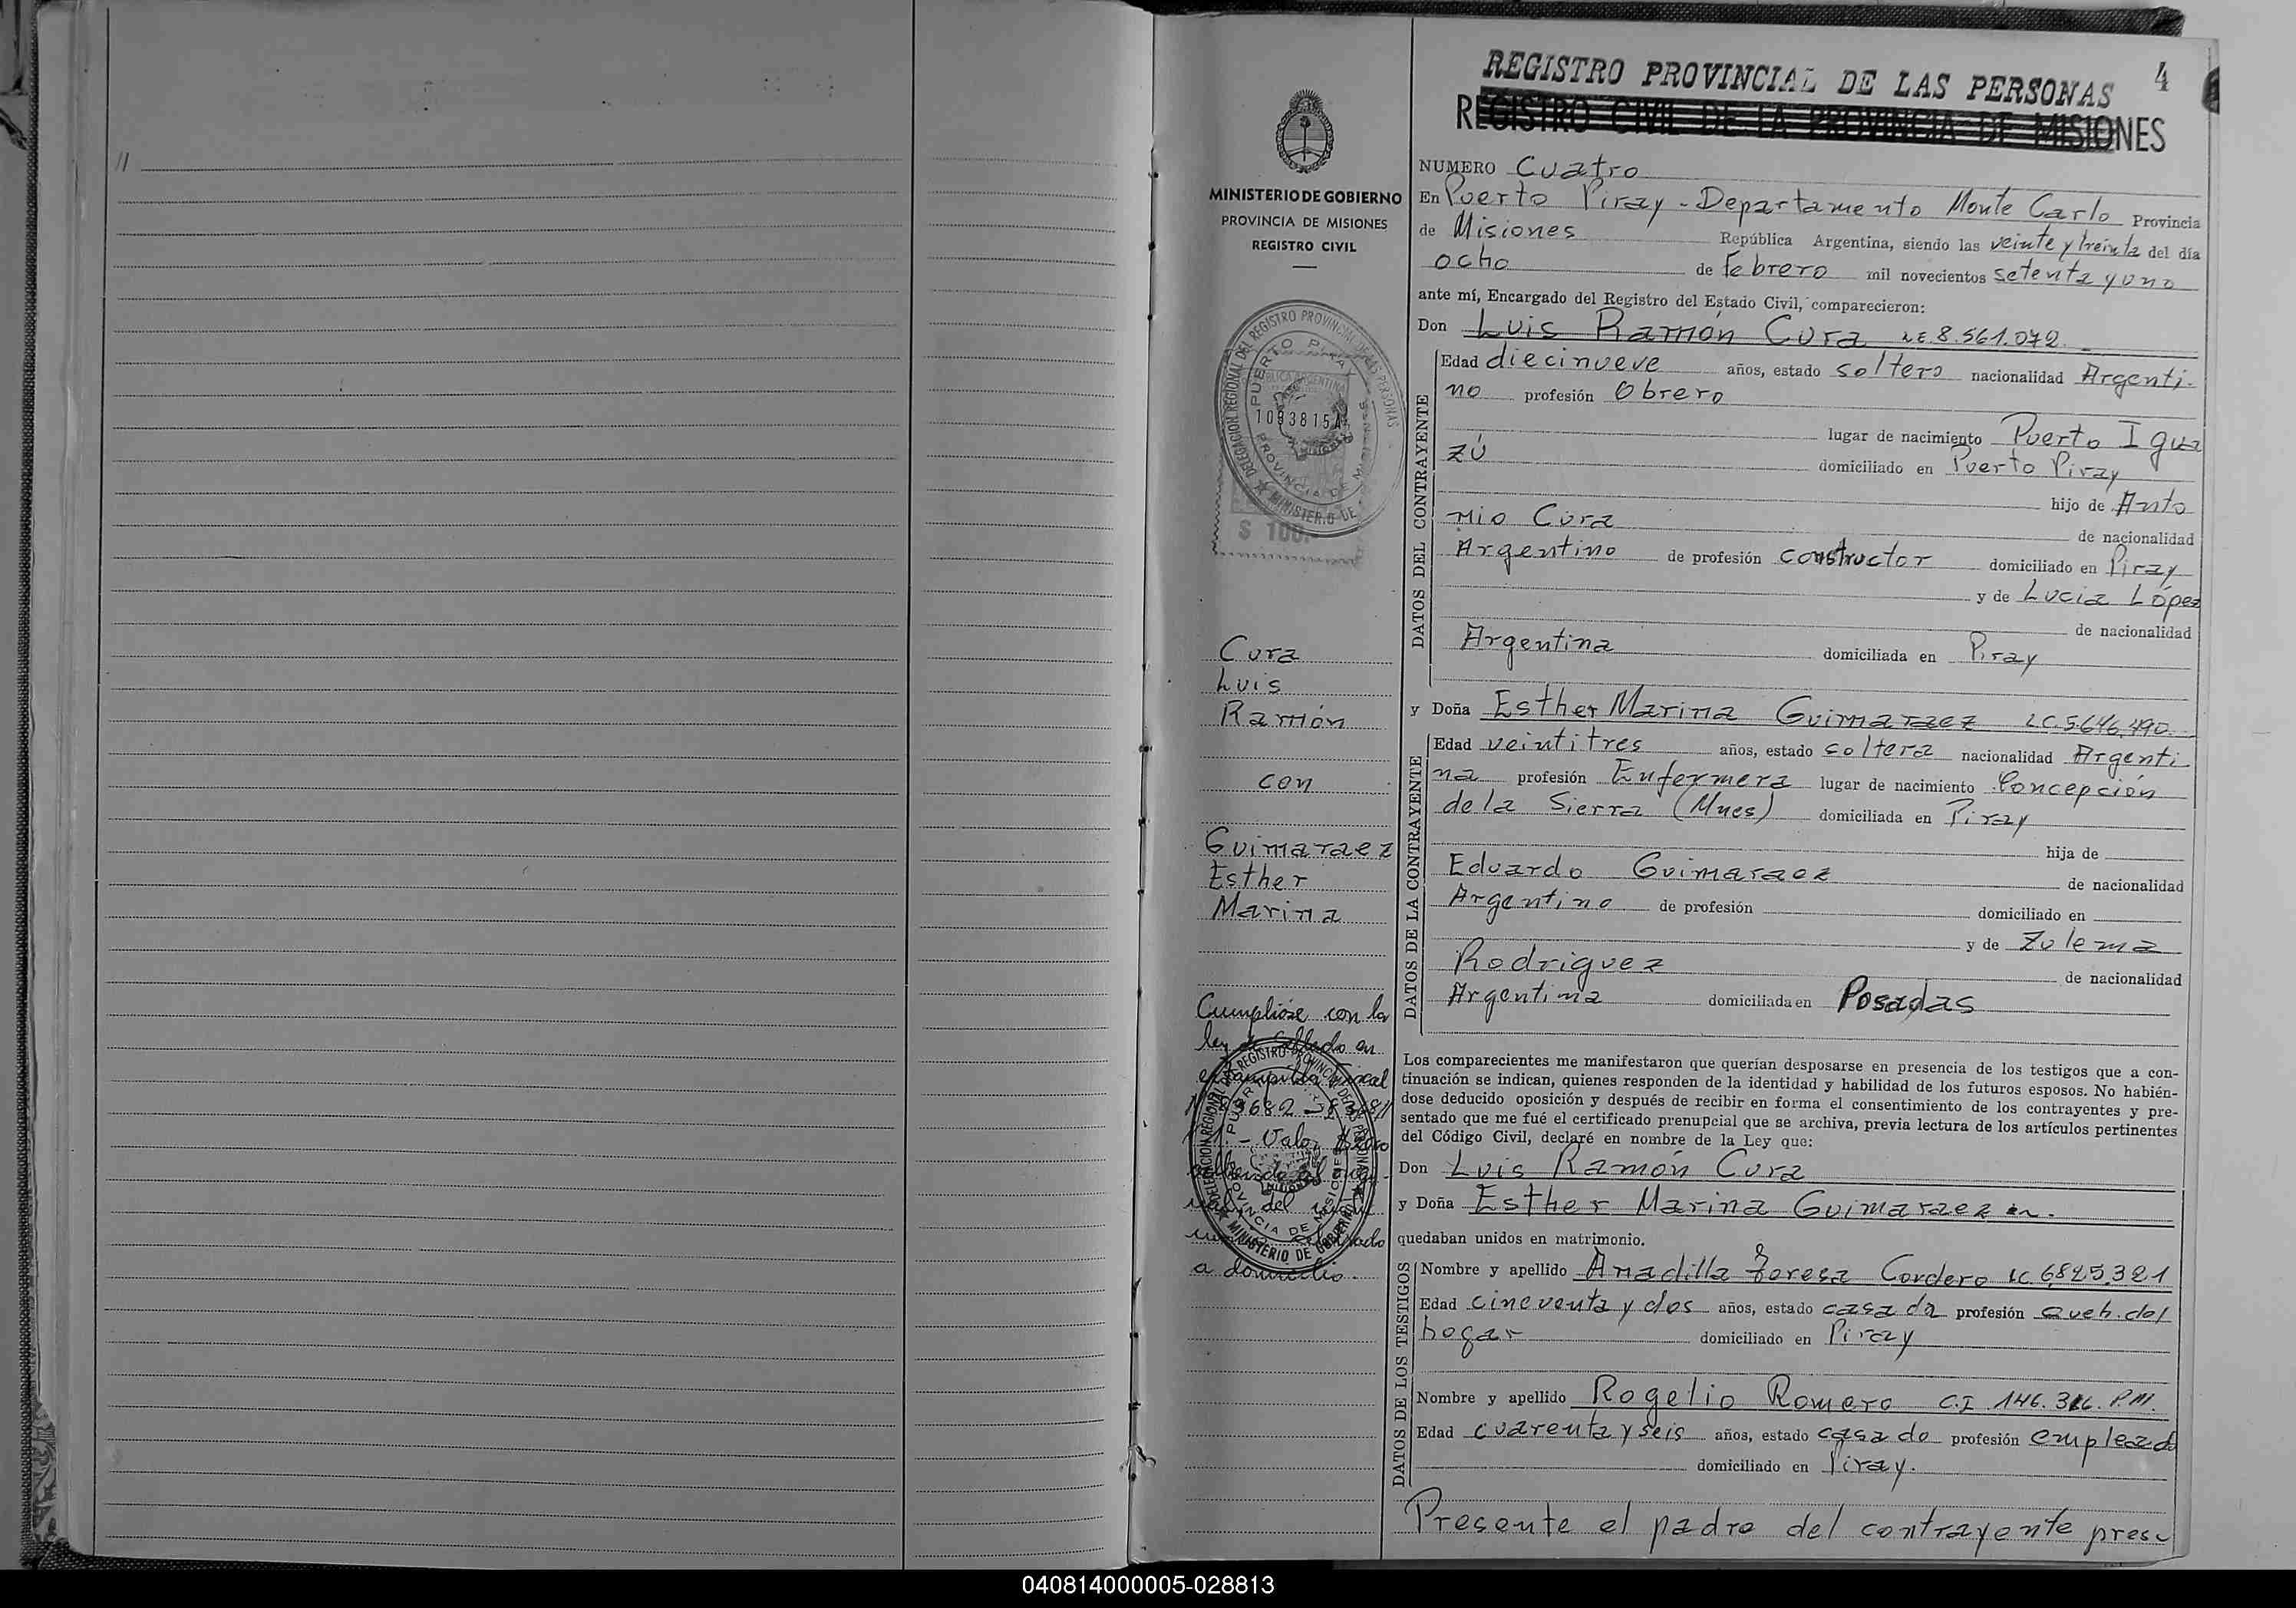 //
REGISTRO PROVINCIAL DE LAS PERSONAS 4
REGISTRO CIVIL DE LA PROVINCIA DE MISIONES
MINISTERIO DE GOBIERNO
PROVINCIA DE MISIONES
REGISTRO CIVIL
DELEGACION REGIONAL DEL REGISTRO PROVINCIAL DE LAS PERSONAS
PUERTO PIRAY
REPUBLICA ARGENTINA
1093815A
PROVINCIA DE MISIONES
MINISTERIO DE
$ 100.-
Cura
Luis
Ramón
con
Guimaraez
Esther
Marina
Cumplióse con la
ley de Sellado en
estampilla fiscal
Valor
del
a domicilio.
DELEGACION REGIONAL DEL REGISTRO PROVINCIAL DE LAS PERSONAS
PROVINCIA DE MISIONES
MINISTERIO DE GOBIERNO
NUMERO Cuatro
En Puerto Piray - Departamento Monte Carlo Provincia
de Misiones República Argentina, siendo las veinte y treinta del día
ocho de Febrero mil novecientos setenta y uno
ante mí, Encargado del Registro del Estado Civil, comparecieron:
Don Luis Ramón Cura L.E. 8.561.072.-
DATOS DEL CONTRAYENTE
Edad diecinueve años, estado soltero nacionalidad Argenti-
no profesión Obrero
lugar de nacimiento Puerto Igua
zú domiciliado en Puerto Piray
hijo de Anto
nio Cura
de nacionalidad
Argentino de profesión constructor domiciliado en Piray
y de Lucia López
de nacionalidad
Argentina domiciliada en Piray
y Doña Esther Marina Guimaraez L.C. 5.646.490.-
DATOS DE LA CONTRAYENTE
Edad veintitres años, estado soltera nacionalidad Argenti
na profesión Enfermera lugar de nacimiento Concepción
de la Sierra (Mnes) domiciliada en Piray
hija de
Eduardo Guimaraez de nacionalidad
Argentino de profesión domiciliado en
y de Zulema
Rodriguez de nacionalidad
Argentina domiciliada en Posadas
Los comparecientes me manifestaron que querían desposarse en presencia de los testigos que a con-
tinuación se indican, quienes responden de la identidad y habilidad de los futuros esposos. No habién-
dose deducido oposición y después de recibir en forma el consentimiento de los contrayentes y pre-
sentado que me fué el certificado prenupcial que se archiva, previa lectura de los artículos pertinentes
del Código Civil, declaré en nombre de la Ley que:
Don Luis Ramón Cura
y Doña Esther Marina Guimaraez
quedaban unidos en matrimonio.
DATOS DE LOS TESTIGOS
Nombre y apellido Anadilla Teresa Cordero LC 6.825.321
Edad cincuenta y dos años, estado casada profesión Queh. del
hogar domiciliado en Piray
Nombre y apellido Rogelio Romero C.I. 146.316. P.M.
Edad cuarenta y seis años, estado casado profesión empleado
domiciliado en Piray.
Presente el padre del contrayente prese
040814000005-028813